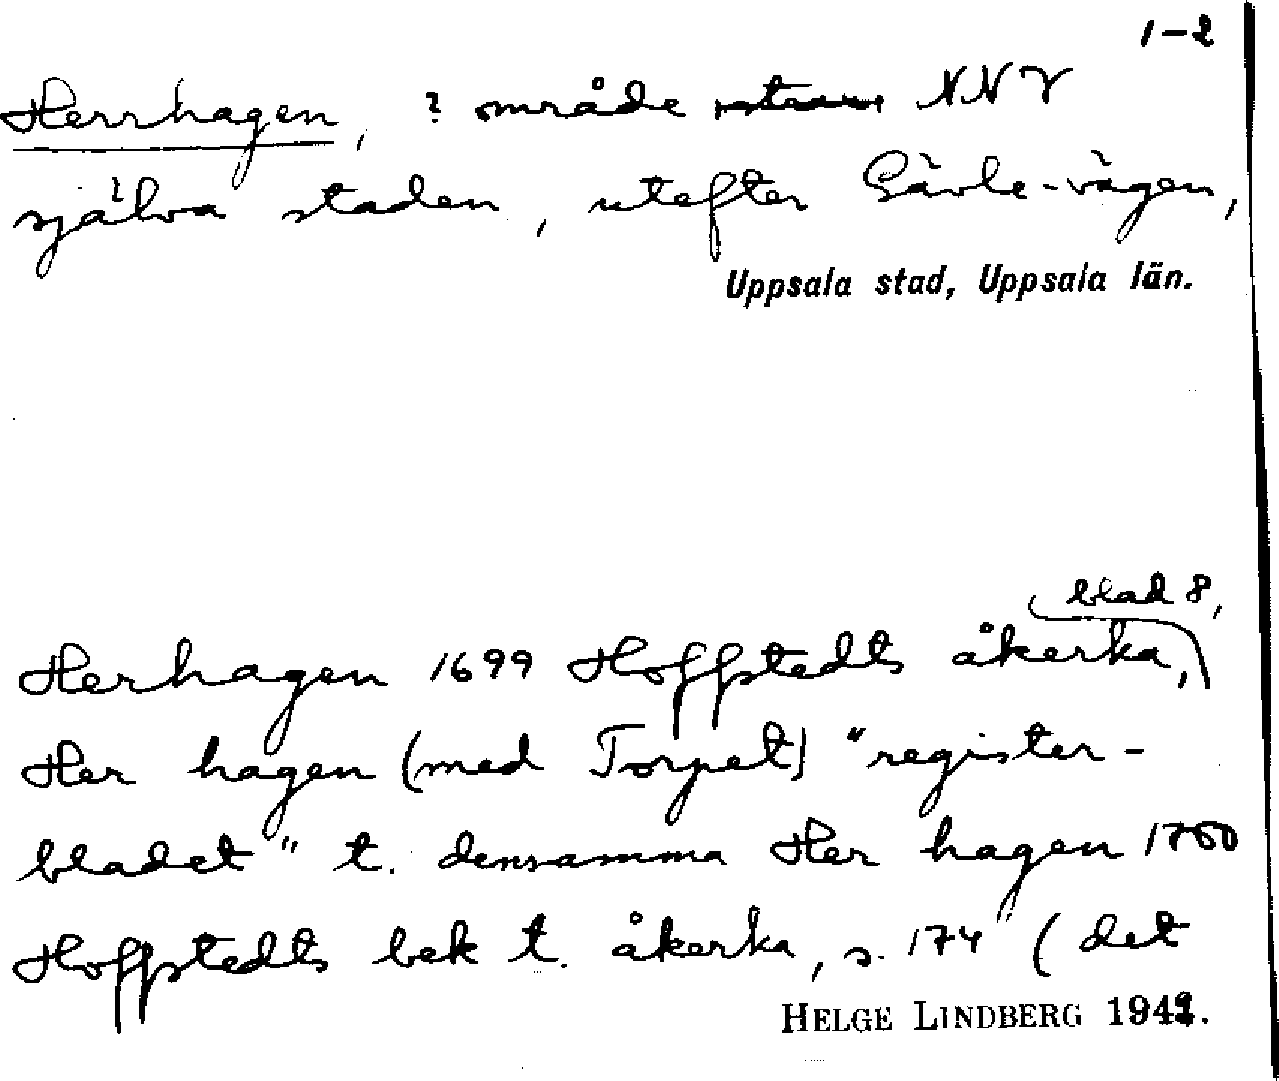 1-2
Herrhagen, ? område NNV
själva staden, utefter Gävle-vägen,
Uppsala stad, Uppsala län.
blad 8,
Herhagen 1699 Hoffstedts åkerka,
Her hagen (med Torpet) "register-
bladet" t. densamma Her hagen 1700
Hoffstedts bek t. åkerka, s. 174 (det
HELGE LINDBERG 194